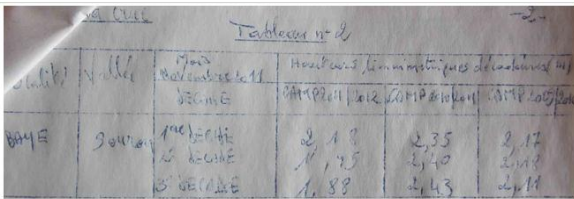 la Crue
-2-
Tableau n° 2
Localité Vallée Mois Novembre 2011 DECADE Hauteurs limnimétriques décadaires (m)
CAMP2011/2012 CAMP2010/2011 CAMP2009/2010
BAYE Sourou 1ère DECADE 2,18 2,35 2,17
2è DECADE 1,95 2,40 2,18
3è DECADE 1,88 2,43 2,11